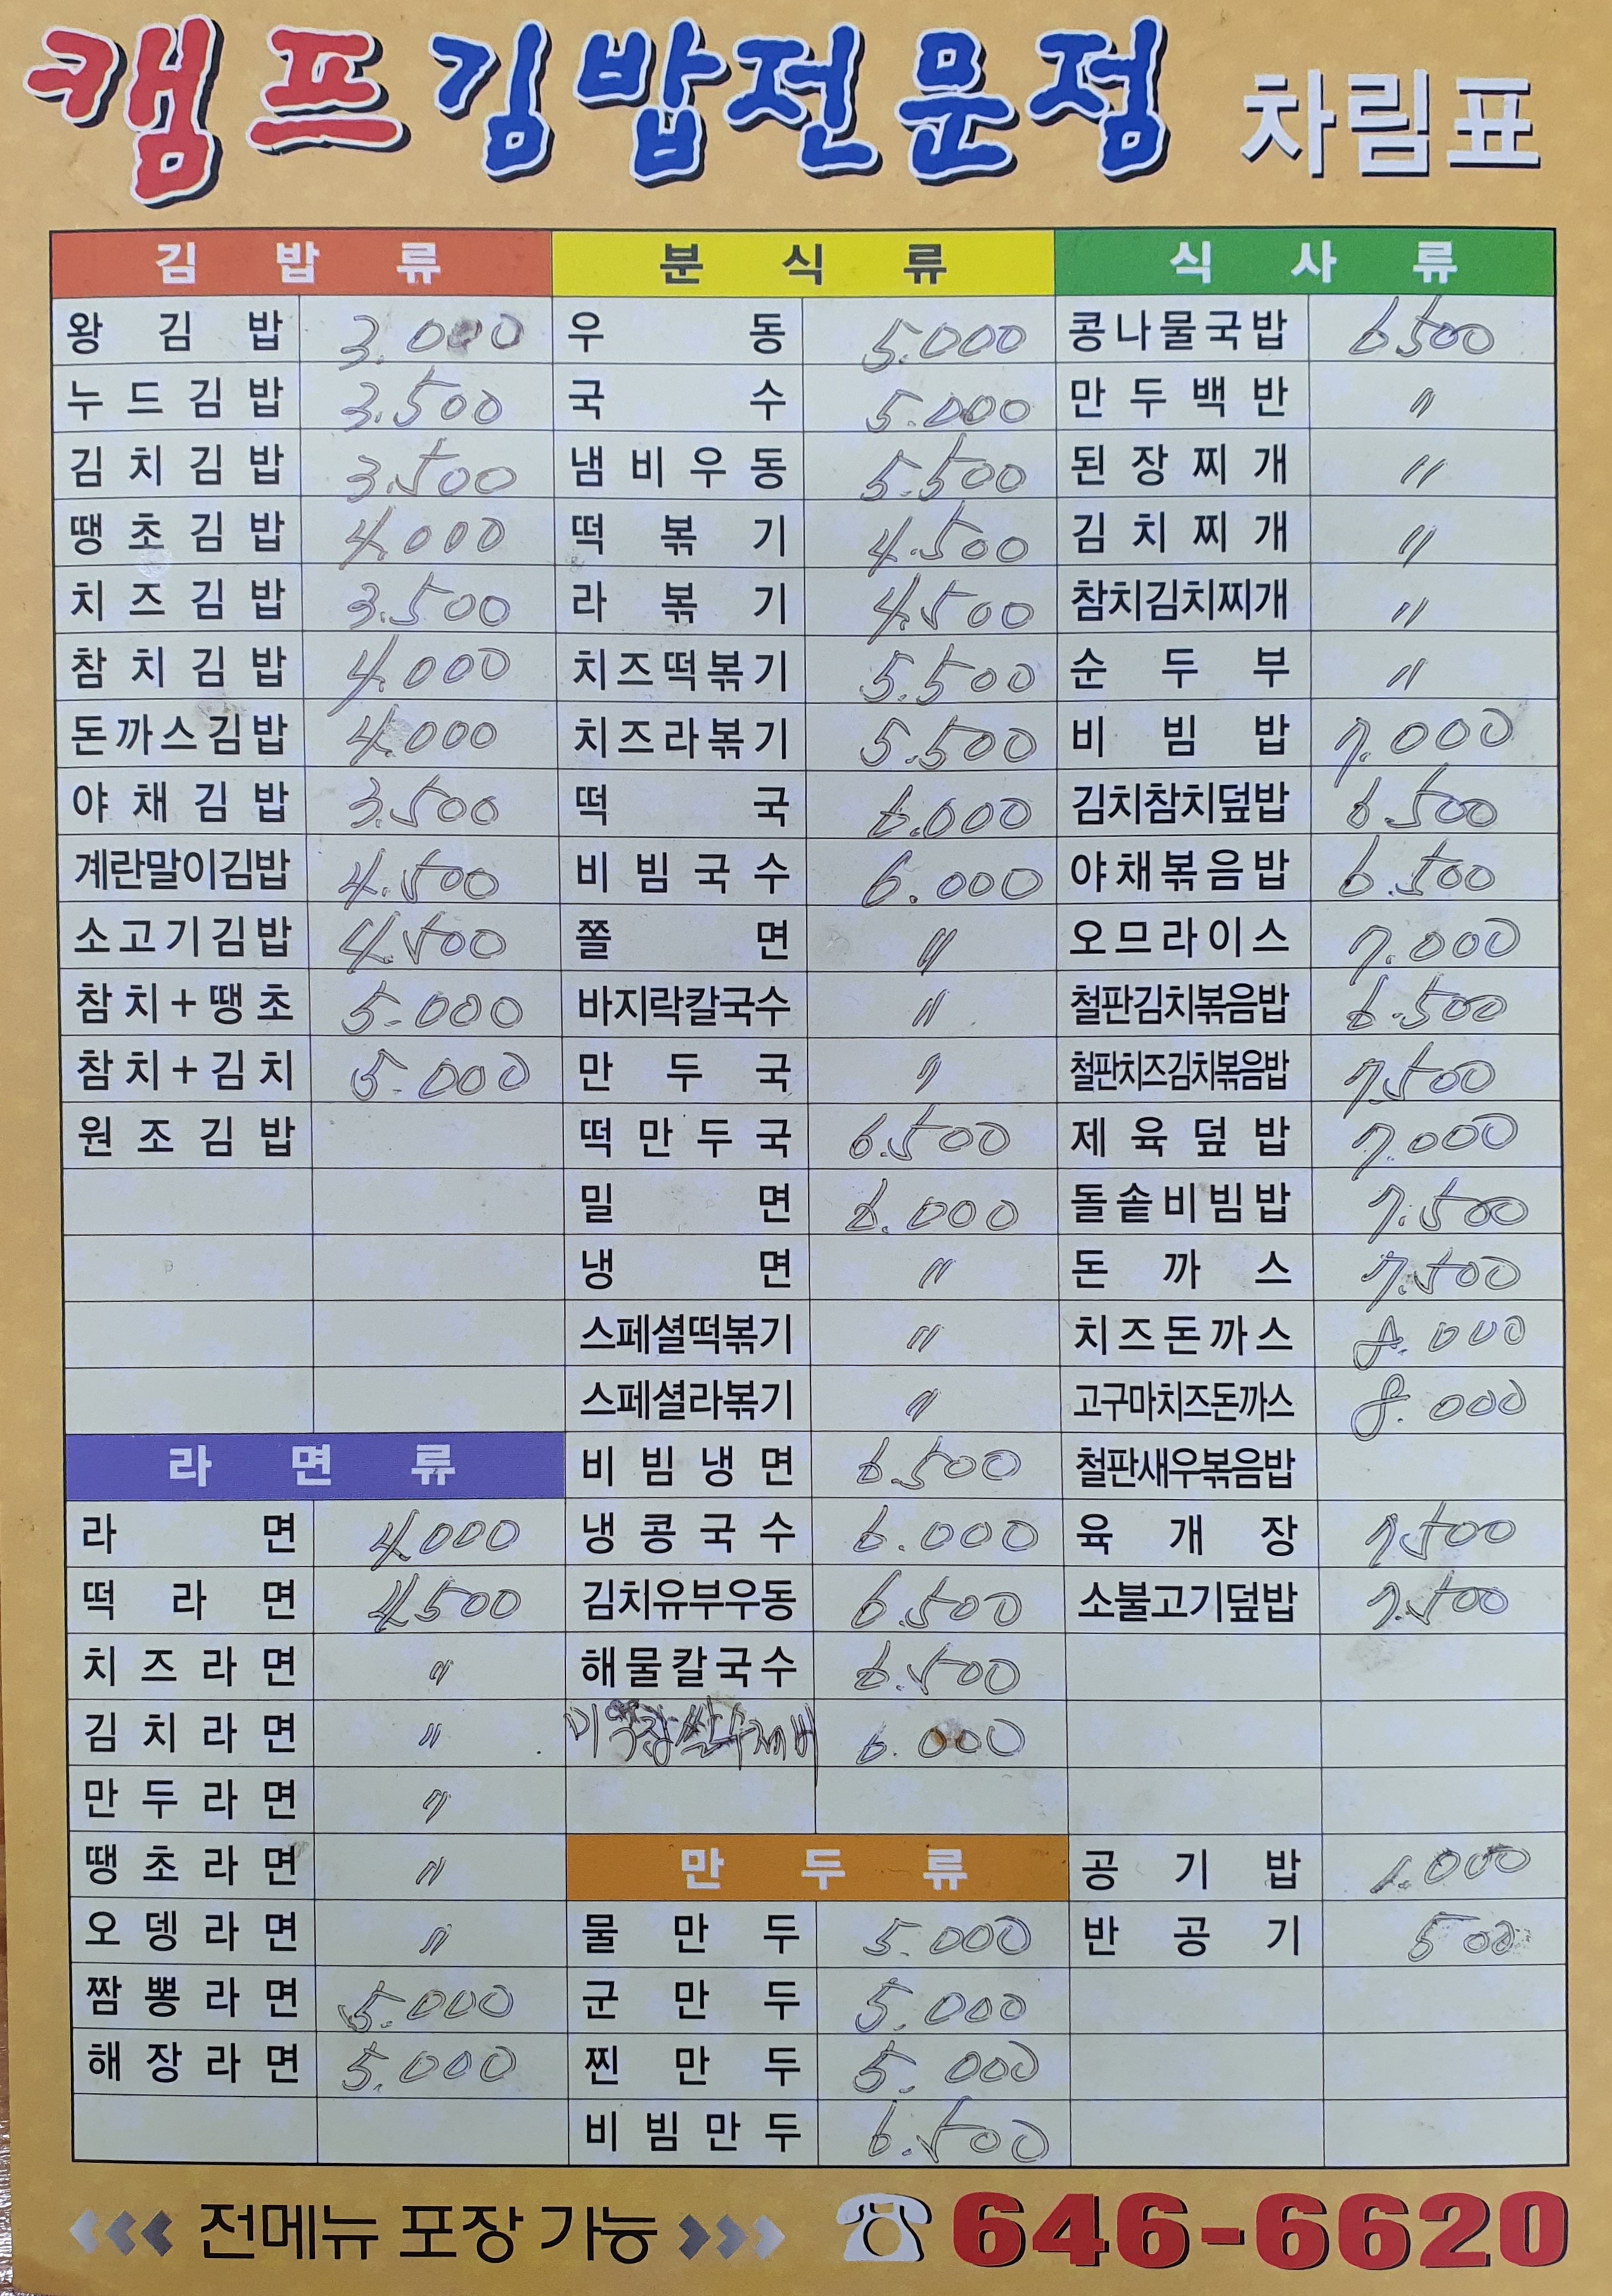 캠프김밥전문점 차림표
김밥류
왕김밥 3.000
누드김밥 3.500
김치김밥 3.500
땡초김밥 4.000
치즈김밥 3.500
참치김밥 4.000
돈까스김밥 4.000
야채김밥 3.500
계란말이김밥 4.500
소고기김밥 4.500
참치+땡초 5.000
참치+김치 5.000
원조김밥
라면류
라면 4.000
떡라면 4.500
치즈라면 〃
김치라면 〃
만두라면 〃
땡초라면 〃
오뎅라면 〃
짬뽕라면 5.000
해장라면 5.000
분식류
우동 5.000
국수 5.000
냄비우동 5.500
떡볶기 4.500
라볶기 4.500
치즈떡볶기 5.500
치즈라볶기 5.500
떡국 6.000
비빔국수 6.000
쫄면 〃
바지락칼국수 〃
만두국 〃
떡만두국 6.500
밀면 6.000
냉면 〃
스페셜떡볶기 〃
스페셜라볶기 〃
비빔냉면 6.500
냉콩국수 6.000
김치유부우동 6.500
해물칼국수 6.500
미역장쌀수제비 6.000
만두류
물만두 5.000
군만두 5.000
찐만두 5.000
비빔만두 6.500
식사류
콩나물국밥 6500
만두백반 〃
된장찌개 〃
김치찌개 〃
참치김치찌개 〃
순두부 〃
비빔밥 7.000
김치참치덮밥 6.500
야채볶음밥 6.500
오므라이스 7.000
철판김치볶음밥 6.500
철판치즈김치볶음밥 7.500
제육덮밥 7.000
돌솥비빔밥 7.500
돈까스 7.500
치즈돈까스 8.000
고구마치즈돈까스 8.000
철판새우볶음밥
육개장 7.500
소불고기덮밥 7.500
공기밥 1.000
반공기 500
전메뉴 포장 가능 646-6620